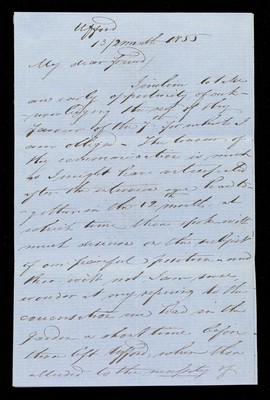 Ufford
13/2 month 1855
My dear friend/
I incline to take
an early opportunity of ack-
nowledging the rect of thy
favour of the 7th for which I
am obliged - The tenour of
thy communication is much
as I might have anticipated
after the interview we had to-
gether in the 12th month at
which time thou spoke with
much on this subject
of our painful position and
thou wilt not I am sure
wonder at my referring to the
conversation we had in the
garden a short time before
thou left Ufford when thou
alluded to the necessity of